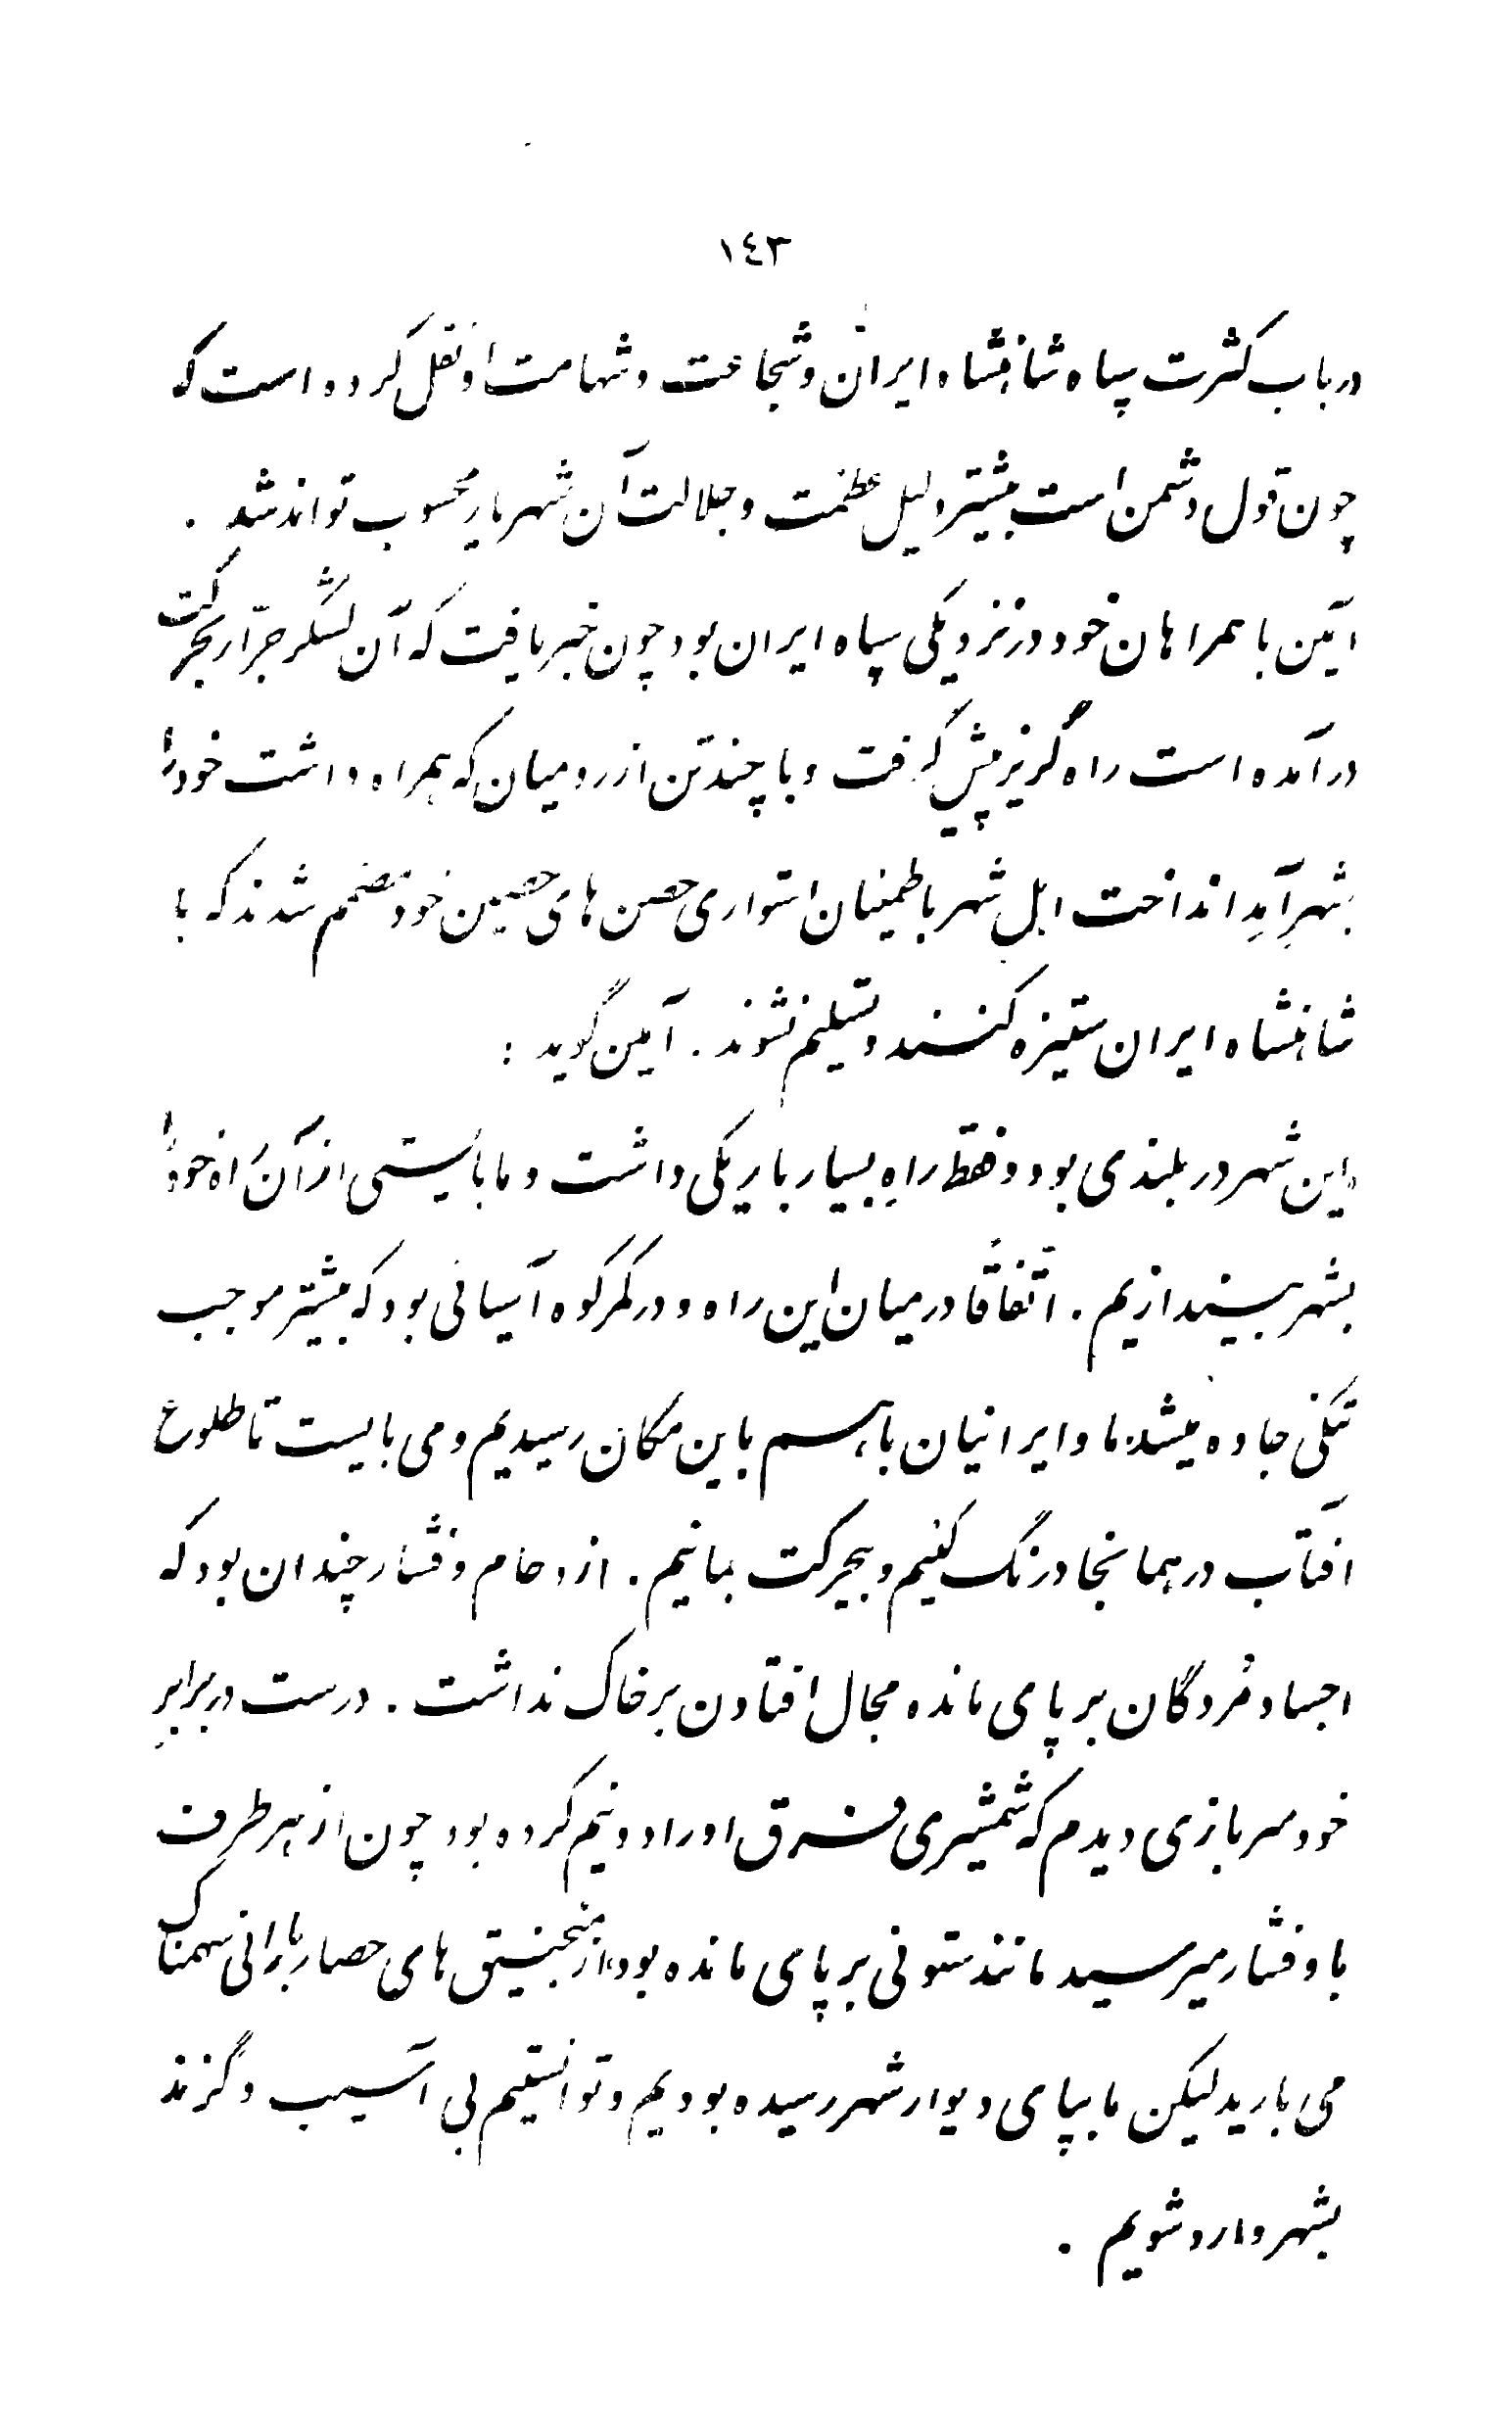 ١٤٣
در باب کثرت سپاه شاهنشاه ایران و شجاعت و شهامت او نقل کرده است که
چون قول دشمن است بیشتر دلیل عظمت و جلالت آن شهریار محسوب تواند شد .
امین با همراهان خود در نزدیکی سپاه ایران بود چون خبر یافت که آن لشگر جرّار بحرکت
در آمده است راه گریز پیش گرفت و با چند تن از رومیان که همراه داشت خود را
بشهر آمِد انداخت اهل شهر باطمینان استواری حصن های حصین خود مصمم شدند که با
شاهنشاه ایران ستیزه کنند و تسلیم نشوند . آمین گوید :
«این شهر در بلندی بود و فقط راهِ بسیار باریکی داشت و ما بایستی از آن راه خود را
بشهر بیندازیم . اتّفاقاً در میان این راه و در کمر کوه آسیائی بود که بیشتر موجب
تنگی جاده میشد ما و ایرانیان باهم باین مکان رسیدیم و می بایست تا طلوع
آفتاب در همانجا درنگ کنیم و بیحرکت بمانیم . ازدحام و فشار چندان بود که
اجساد مُردگان بر پای مانده مجال افتادن بر خاک نداشت . درست در برابرِ
خود سربازی دیدم که شمشیری فرق او را دو نیم کرده بود چون از هر طرف
باو فشار میرسید مانند ستونی بر پای مانده بود از منجنیق های حصار بارانی سهمناک
می بارید لیکن ما بپای دیوار شهر رسیده بودیم و توانستیم بی آسیب و گزند
بشهر وارد شویم .